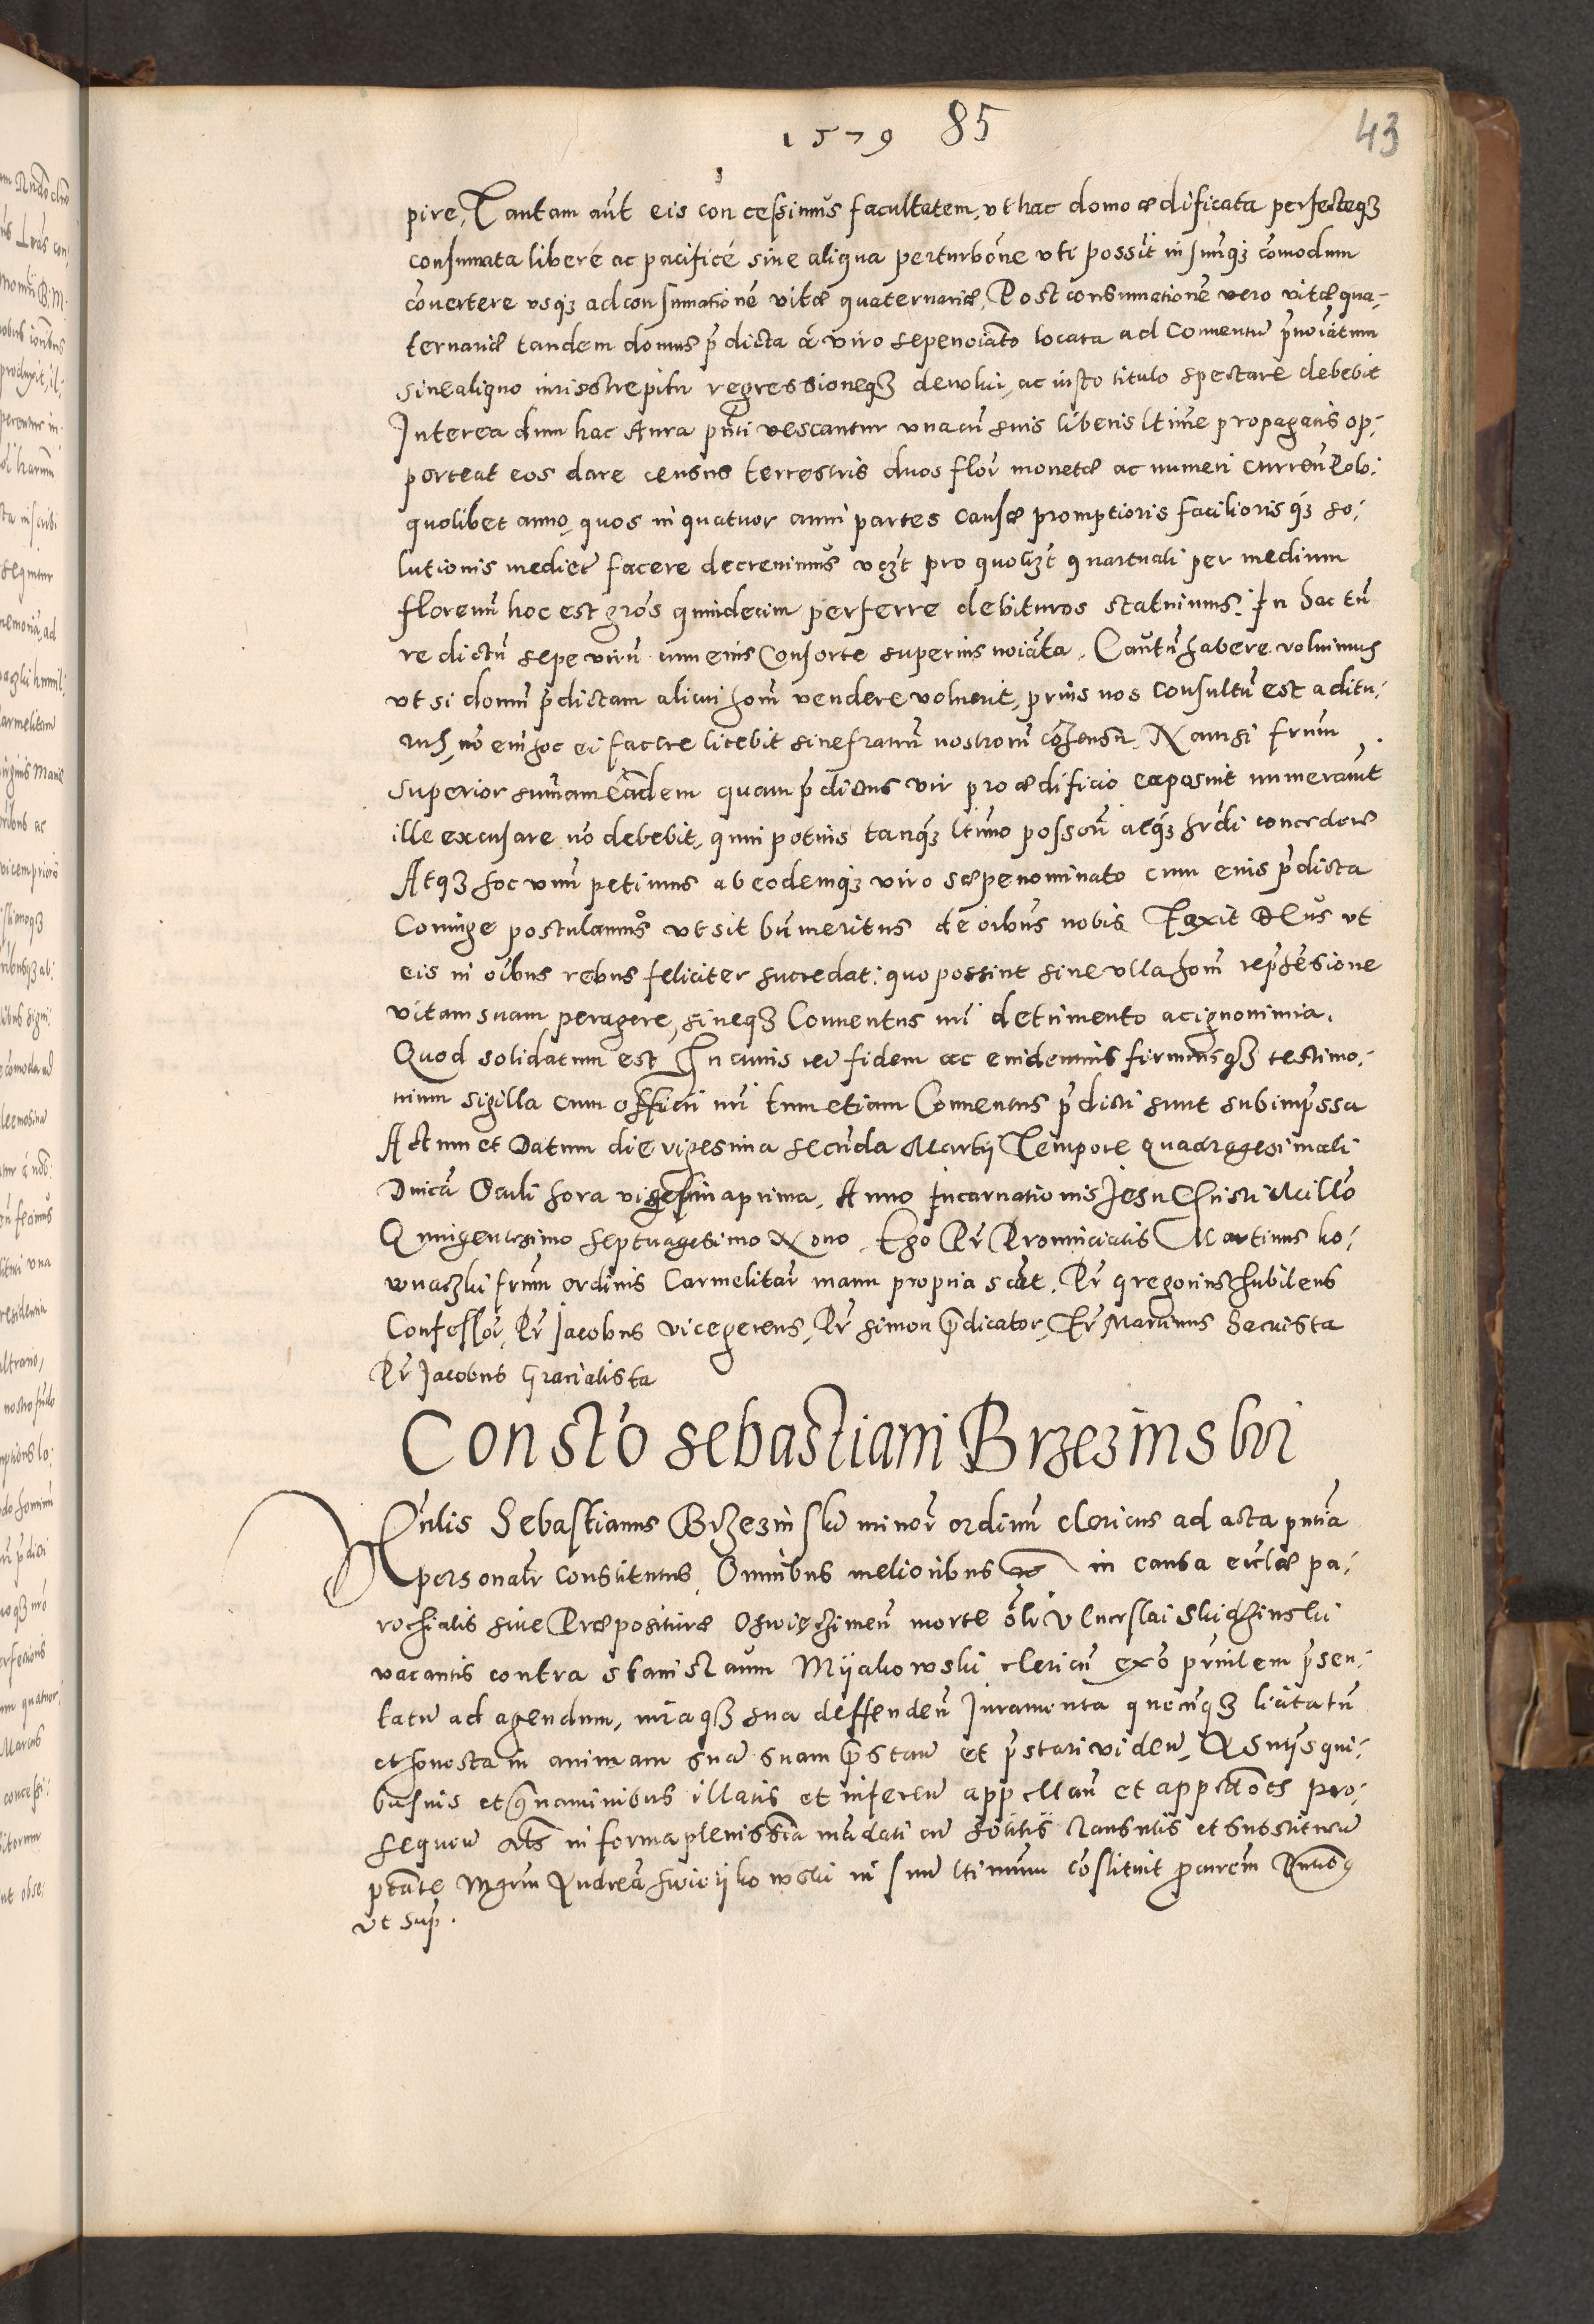 1579 85 43
pire, Tantam aut̃ eis concessimus facultatem, vt hac domo ædificata perfecteq3
consumata liberé ac pacificé sine aliqua perturbõne vti possit in suũq3 cõmodum
cõuertere vsq3 ad consumationẽ vitæ quaternariæ, Post consumationẽ vero vitæ qua-
ternariæ tandem domus p̃dicta á viro sepenoiãto locata ad Conuentũ p̃noiãtum
sine aliquo iurisstrepitu regressioneq3 deuolui, ac iusto titulo spectare debebit
Interea dum hac Aura pñti vescantur vnacũ suis liberis ltime propagatis op-
porteat eos dare census terrestris duos flor̃ monetæ ac numeri curreñ Polo:
quolibet anno, quos in quatuor anni partes causæ promptioris faciliorisq3 so-
lutionis mediet̃ facere decreuimus vczt pro quolizt quartuali per medium
florenũ hoc est gros̃ quindecim perferre debituros statuimus. In hac tñ
re dictũ sepe virũ cum eius Consorte superius noiãta. Cautũ habere voluimus
vt si domũ p̃dictam alicui hom̃ vendere voluerit, prius nos consultũ est aditu-
rus, nõ em̃ hoc ei facere licebit sine fratrũ nostrorũ cõsensu. Nam si frũm
superior sum̃am eãdem quam p̃dictus vir pro ædificio exposuit numerauit
ille excusare nõ debebit, quin potius tanq3 ltimo possorĩ aeq3 hrdi concedere
Atq3 hoc vnũ petimus ab eodemq3 viro sæpenominato cum eius p̃dicta
Coniuge postulamus vt sit bñ meritus de oibus nobis Faxit Deus vt
eis in oĩbus rebus feliciter succedat: quo possint sine vlla hom̃ repr̃hẽsione
vitam suam peragere, sineq3 Conuentus nr̃i detrimento ac ignominia.
Quod solidatum est In cuius rei fidem ac euidentius firmiusq3 testimo-
nium sigilla cum officii nr̃i tum etiam Conuentus p̃dicti sunt subimp̃ssa
Actum et Datum die vigesima secunda Martij Tempore quadragesimali
Dnicã Oculi hora vigesima prima. Anno Incarnationis Jesu Christi Millõ
Quingentesimo septuagesimo Nono. Ego Pr̃ Prouincialis Martinus ko-
wnaczki frũm ordinis Carmelitar̃ manu propria scãt. Pr̃ gregorius Jubileus
Confessor, Pr̃ Jacobus vicegerens, Pr̃ Simon p̃dicator, Fr̃ Martinus Sacrista
Pr̃ Jacobus Gracialista
Constõ Sebastiani Brzezinski
Rñlis Sebastianus Brzezinski minor̃ ordinũ clericus ad acta pñtia
personalr̃ constitutus Omnibus melioribus etc in causa ecclæ pa-
rochialis siue Præpositure Oswięczimeñ morte olĩ
vacantis contra Stanislaum Mijakowski clericũ p̃sen-
tatũ ad agendum, iuraq3 sua deffendeñ Juramenta quecũq3 licita tñ
et honesta in animam suã suam p̃stañ et p̃stari videñ,
busuis et grauaminibus illatis et infereñ appellañ et appctões pro-
sequeñ in forma plenissĩa mãdati cũ sõlitis clausulis et substitueñ
ptãte Mgrum Andreã in suũ ltimum cõstituit p̃curem
vt sup̃.